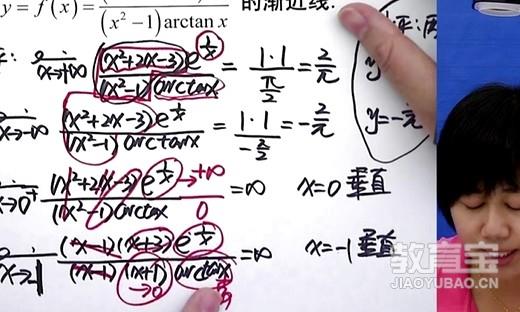 y = f(x) = (x²-1)arctan x 的渐近线.
lim x→+∞ (x²+2x-3)e^{1/x} / (x²-1)arctanx = 1·1 / (π/2) = 2/π
x→-∞ (x²+2x-3)e^{1/x} / (x²-1)arctanx = 1·1 / -π/2 = -2/π y=-2/π
x→0⁺ (x²+2x-3)e^{1/x} →+∞ / (x²-1)arctanx 0 = ∞ x=0 垂直
x→-1 (x-1)(x+3)e^{1/x} / (x-1)(x+1)arctanx →0 = ∞ x=-1 垂直
教育宝
JIAOYUBAO.CN